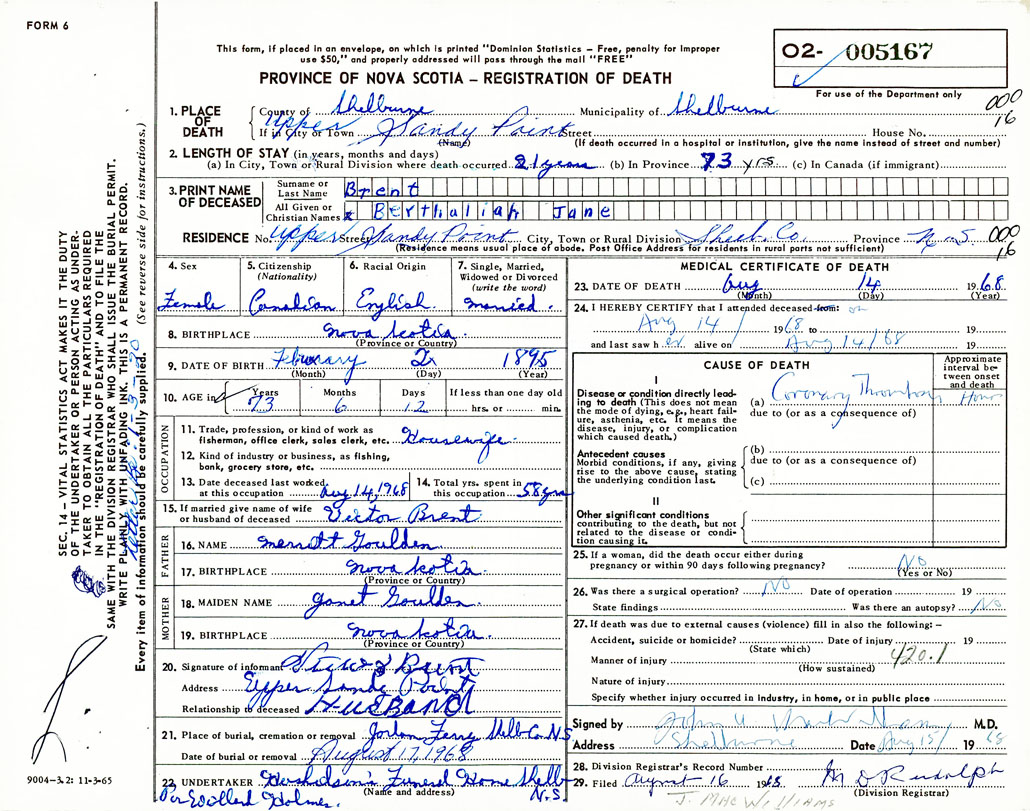 FORM 6
This form, if placed in an envelope, on which is printed "Dominion Statistics – Free, penalty for improper
use $50," and properly addressed will pass through the mail "FREE"
PROVINCE OF NOVA SCOTIA – REGISTRATION OF DEATH
02- 005167
For use of the Department only
000
16
1. PLACE OF DEATH
County of Shelburne Municipality of Shelburne
If in City or Town Upper Sandy Point Street House No.
(Name) (If death occurred in a hospital or institution, give the name instead of street and number)
2. LENGTH OF STAY (in years, months and days)
(a) In City, Town or Rural Division where death occurred 21 years (b) In Province 73 yrs (c) In Canada (if immigrant)
3. PRINT NAME OF DECEASED
Surname or Last Name Brent
All Given or Christian Names Berthaliah Jane
RESIDENCE No. Upper Street Sandy Point City, Town or Rural Division Shelb. Co. Province N.S 000
(Residence means usual place of abode. Post Office Address for residents in rural parts not sufficient) 16
4. Sex Female
5. Citizenship (Nationality) Canadian
6. Racial Origin English
7. Single, Married, Widowed or Divorced (write the word) married.
8. BIRTHPLACE Nova Scotia.
(Province or Country)
9. DATE OF BIRTH February 2 1895
(Month) (Day) (Year)
10. AGE in Years 73 Months 6 Days 12 If less than one day old
hrs. or min.
OCCUPATION
11. Trade, profession, or kind of work as
fisherman, office clerk, sales clerk, etc. Housewife.
12. Kind of industry or business, as fishing,
bank, grocery store, etc.
13. Date deceased last worked at this occupation Aug 14, 1968
14. Total yrs. spent in this occupation 58 yrs
15. If married give name of wife
or husband of deceased Victor Brent
FATHER
16. NAME Merrott Goulden.
17. BIRTHPLACE Nova Scotia.
(Province or Country)
MOTHER
18. MAIDEN NAME Janet Goulden.
19. BIRTHPLACE Nova Scotia.
(Province or Country)
20. Signature of informant Victor Brent
Address Upper Sandy Point
Relationship to deceased HUSBAND
21. Place of burial, cremation or removal Jordan Ferry Shelb Co. N.S
Date of burial or removal August 17, 1968
22. UNDERTAKER Funeral Home Shelb
(Name and address) N.S
Per Willard Holmes.
MEDICAL CERTIFICATE OF DEATH
23. DATE OF DEATH Aug 14 1968
(Month) (Day) (Year)
24. I HEREBY CERTIFY that I attended deceased from: on
Aug 14 1968 to 19
and last saw her alive on Aug 14/68 19
CAUSE OF DEATH
Approximate interval between onset and death
I
Disease or condition directly leading to death (This does not mean the mode of dying, e.g., heart failure, asthenia, etc. It means the disease, injury, or complication which caused death.)
(a) Coronary Thrombosis Hour
due to (or as a consequence of)
Antecedent causes
Morbid conditions, if any, giving rise to the above cause, stating the underlying condition last.
(b)
due to (or as a consequence of)
(c)
II
Other significant conditions
contributing to the death, but not related to the disease or condition causing it.
25. If a woman, did the death occur either during
pregnancy or within 90 days following pregnancy? NO
(Yes or No)
26. Was there a surgical operation? NO Date of operation 19
State findings Was there an autopsy? NO
27. If death was due to external causes (violence) fill in also the following: –
Accident, suicide or homicide? Date of injury 19
(State which)
Manner of injury 420.1
(How sustained)
Nature of injury
Specify whether injury occurred in Industry, in home, or in public place
Signed by M.D.
Address Shelburne Date Aug 15/ 1968
28. Division Registrar's Record Number
29. Filed August 16 1968 M D Rudolph
(Division Registrar)
J. MacWilliams
SEC. 14 – VITAL STATISTICS ACT MAKES IT THE DUTY
OF THE UNDERTAKER OR PERSON ACTING AS UNDER-
TAKER TO OBTAIN ALL THE PARTICULARS REQUIRED
IN THE "REGISTRATION OF DEATH" AND TO FILE THE
SAME WITH THE DIVISION REGISTRAR WHO SHALL ISSUE THE BURIAL PERMIT.
WRITE PLAINLY WITH UNFADING INK. THIS IS A PERMANENT RECORD.
Every item of information should be carefully supplied. (See reverse side for instructions.)
9004-3.2: 11-3-65